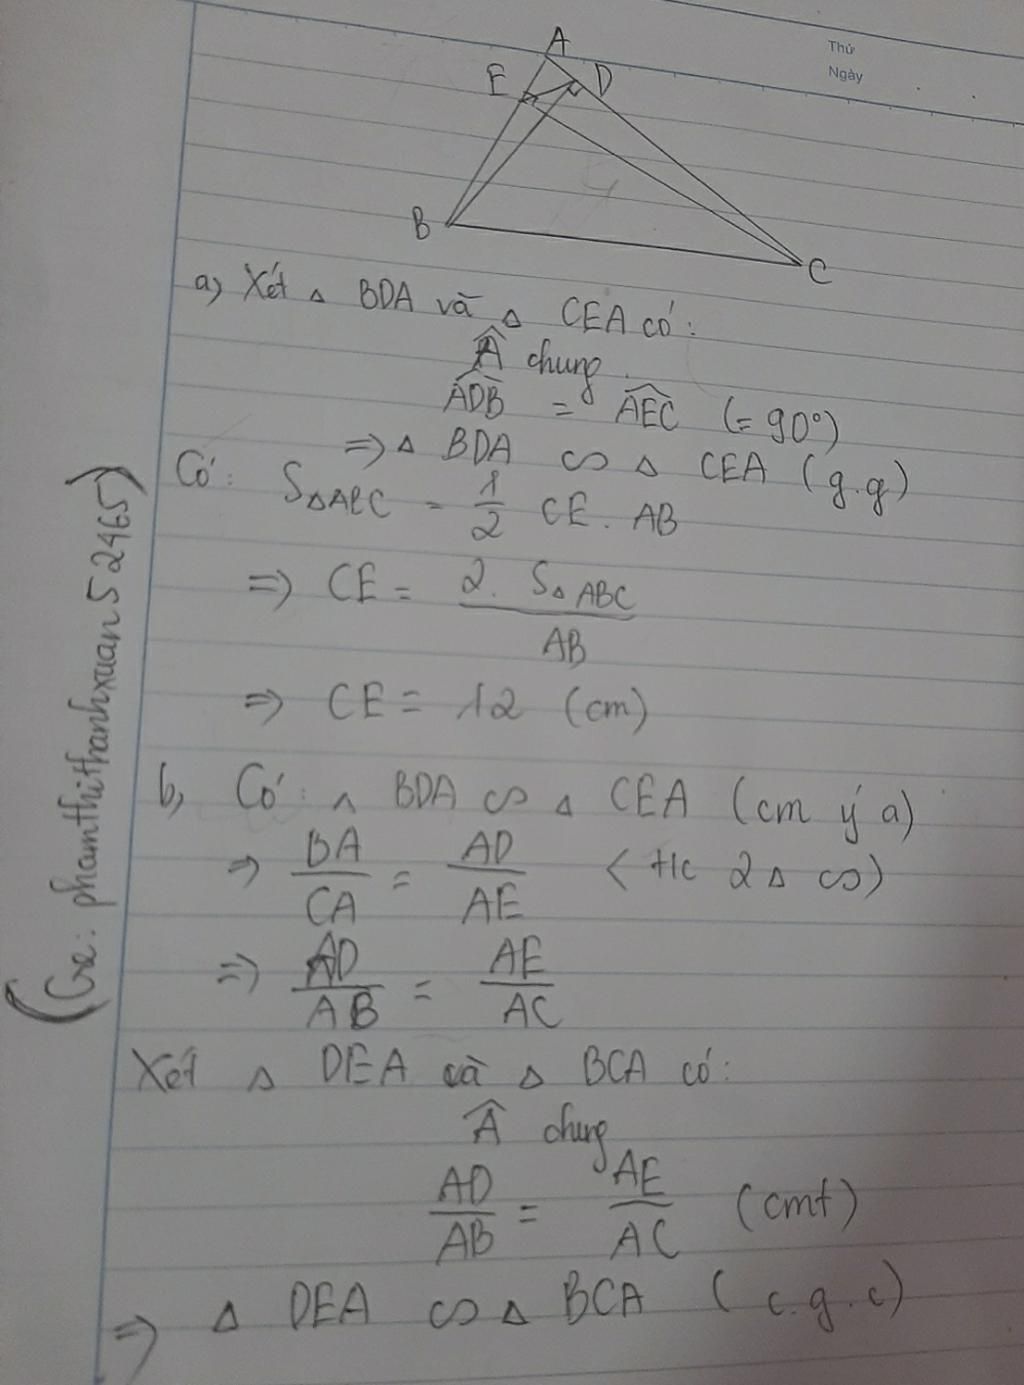 Thứ
Ngày
A
E
D
B
C
a) Xét △ BDA và △ CEA có:
Â chung
ADB = AEC (= 90°)
=> △ BDA ∽ △ CEA (g.g)
Có: S△ABC = 1/2 CE. AB
=> CE = 2. S△ABC / AB
=> CE = 12 (cm)
b, Có: △ BDA ∽ △ CEA (cm ý a)
=> BA/CA = AD/AE < t/c 2△ ∽)
=> AD/AB = AE/AC
Xét △ DEA và △ BCA có:
Â chung
AD/AB = AE/AC (cmt)
=> △ DEA ∽ △ BCA (c.g.c)
(Cre: phamthithanhxuan52465)